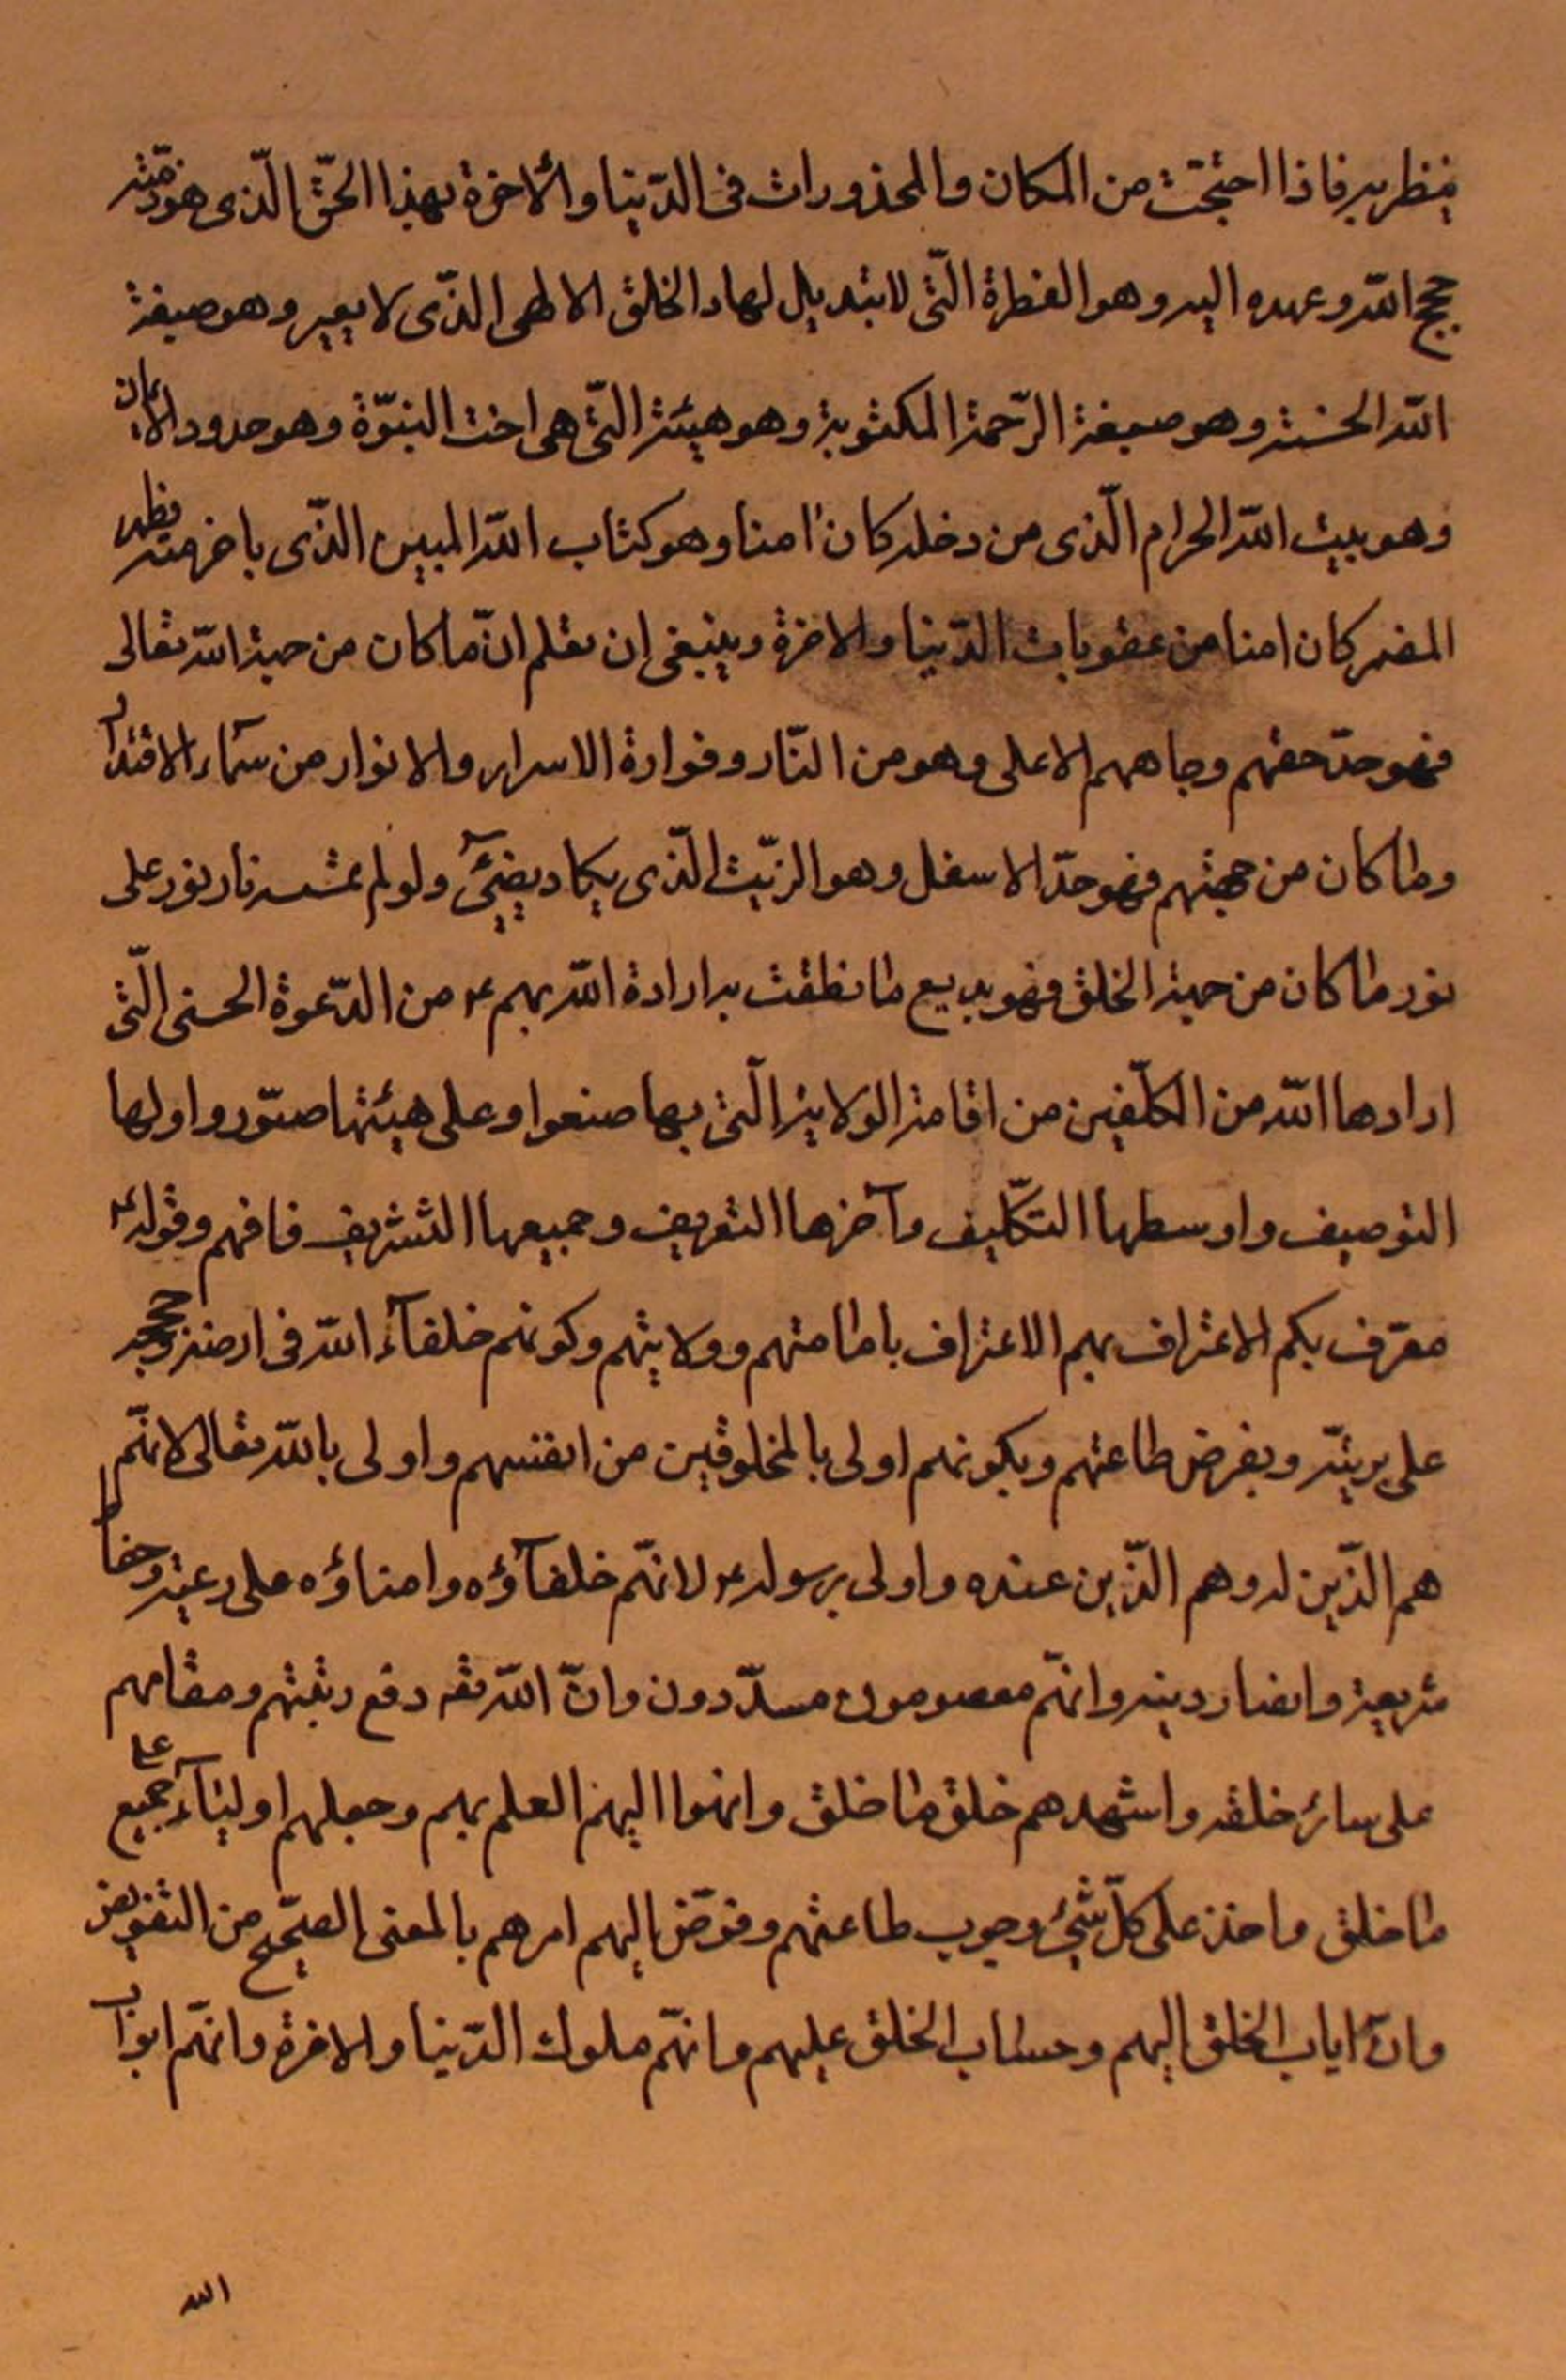 ينظر به فاذا احتجبت من المكان والمحذورات فى الدّنيا والأخرة بهذا الحقّ الّذى هو ذمّته
حجج اللّه وعهده اليه وهو الفطرة الّتى لا تبديل لها والخلق الاطهى الذّى لا يغير وهو صبغة
اللّه الحسنة وهو صبغة الرّحمة المكتوبة وهو هيئة التّى هى اخت النبوّة وهو حدود الايمان
وهو بيت اللّه الحرام الّذى من دخله كان امنا وهو كتاب اللّه المبين الذّى باحرفه يظهر
المضمر كان امنا من عقوبات الدّنيا والاخرة وينبغى ان تعلم انّ ما كان من جهة اللّه تعالى
فهو حدّ حقهم وجاههم الاعلى وهو من النّار وفوارة الاسرار والانوار من سمآء الاقتدار
وما كان من جهتهم فهو حدّ الاسفل وهو الزيّت الّذى يكاد يضيئ ولو لم تمسسه نار نور على
نور ما كان من جهة الخلق فهو بديع ما نطقت به ارادة اللّه بهم ع من الدّعوة الحسنى الّتى
ارادها اللّه من المكلّفين من اقامة الولاية الّتى بها صنعوا وعلى هيئتها صوّروا ولها
التوصيف واوسطها التكّليف وآخرها التعريف وجميعها التشريف فافهم وقوله ع
معترف بكم الاعتراف بهم الاعتراف بامامتهم وولايتهم وكونهم خلفآء اللّه فى ارضه وحججه
على بريتّه وبفرض طاعتهم وبكونهم اولى بالمخلوقين من انفسهم واولى باللّه تعالى لانهّم
هم الذّين له وهم الذّين عنده واولى برسوله ع لانهّم خلفآؤه وامناؤه على رعيته وحفاظ
شريعته وانصار دينه وانهّم معصومون مسدّدون وانّ اللّه تعه رفع رتبتهم ومقامهم
على سائر خلقه واشهدهم خلق ما خلق وانهوا اليهم العلم بهم وجعلهم اوليآء على جميع
ما خلق واخذ على كلّ شيئ وجوب طاعتهم وفوّض اليهم امرهم بالمعنى الصحّيح من التفويض
وانّ اياب الخلق اليهم وحساب الخلق عليهم وانهّم ملوك الدّنيا والاخرة وانهّم ابواب
الله